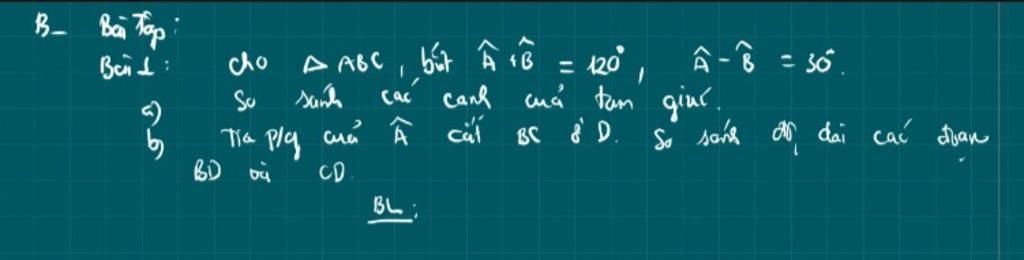 B- Bài Tập:
Bài 1: Cho △ ABC, biết Â + B̂ = 120°, Â - B̂ = 30°.
a) So sánh các cạnh của tam giác.
b) Tia p/g của Â cắt BC ở D. So sánh độ dài các đoạn
BD và CD.
BL: